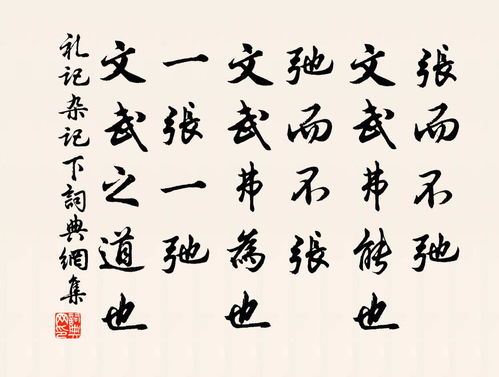 張而不弛
文武弗能也
弛而不張
文武弗為也
一張一弛
文武之道也
礼记杂记下詞典網集